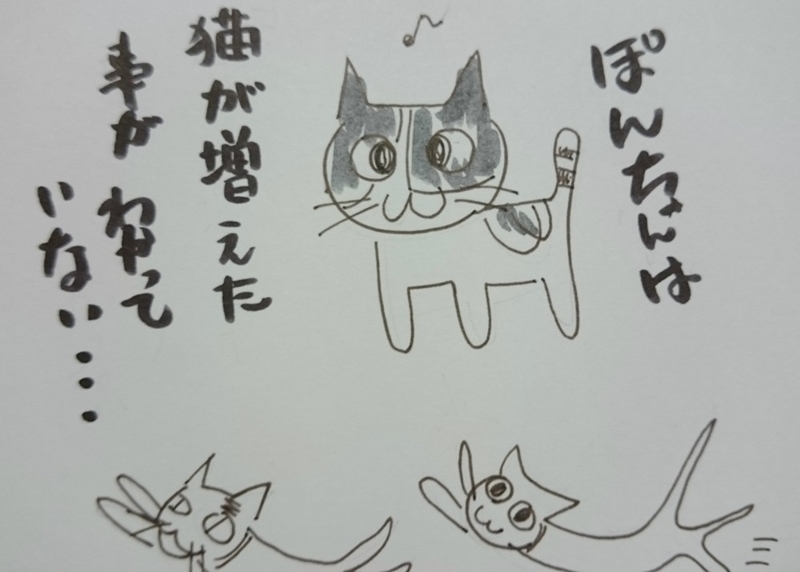 ぽんちゃんは
猫が増えた
事が わかって
いない・・・